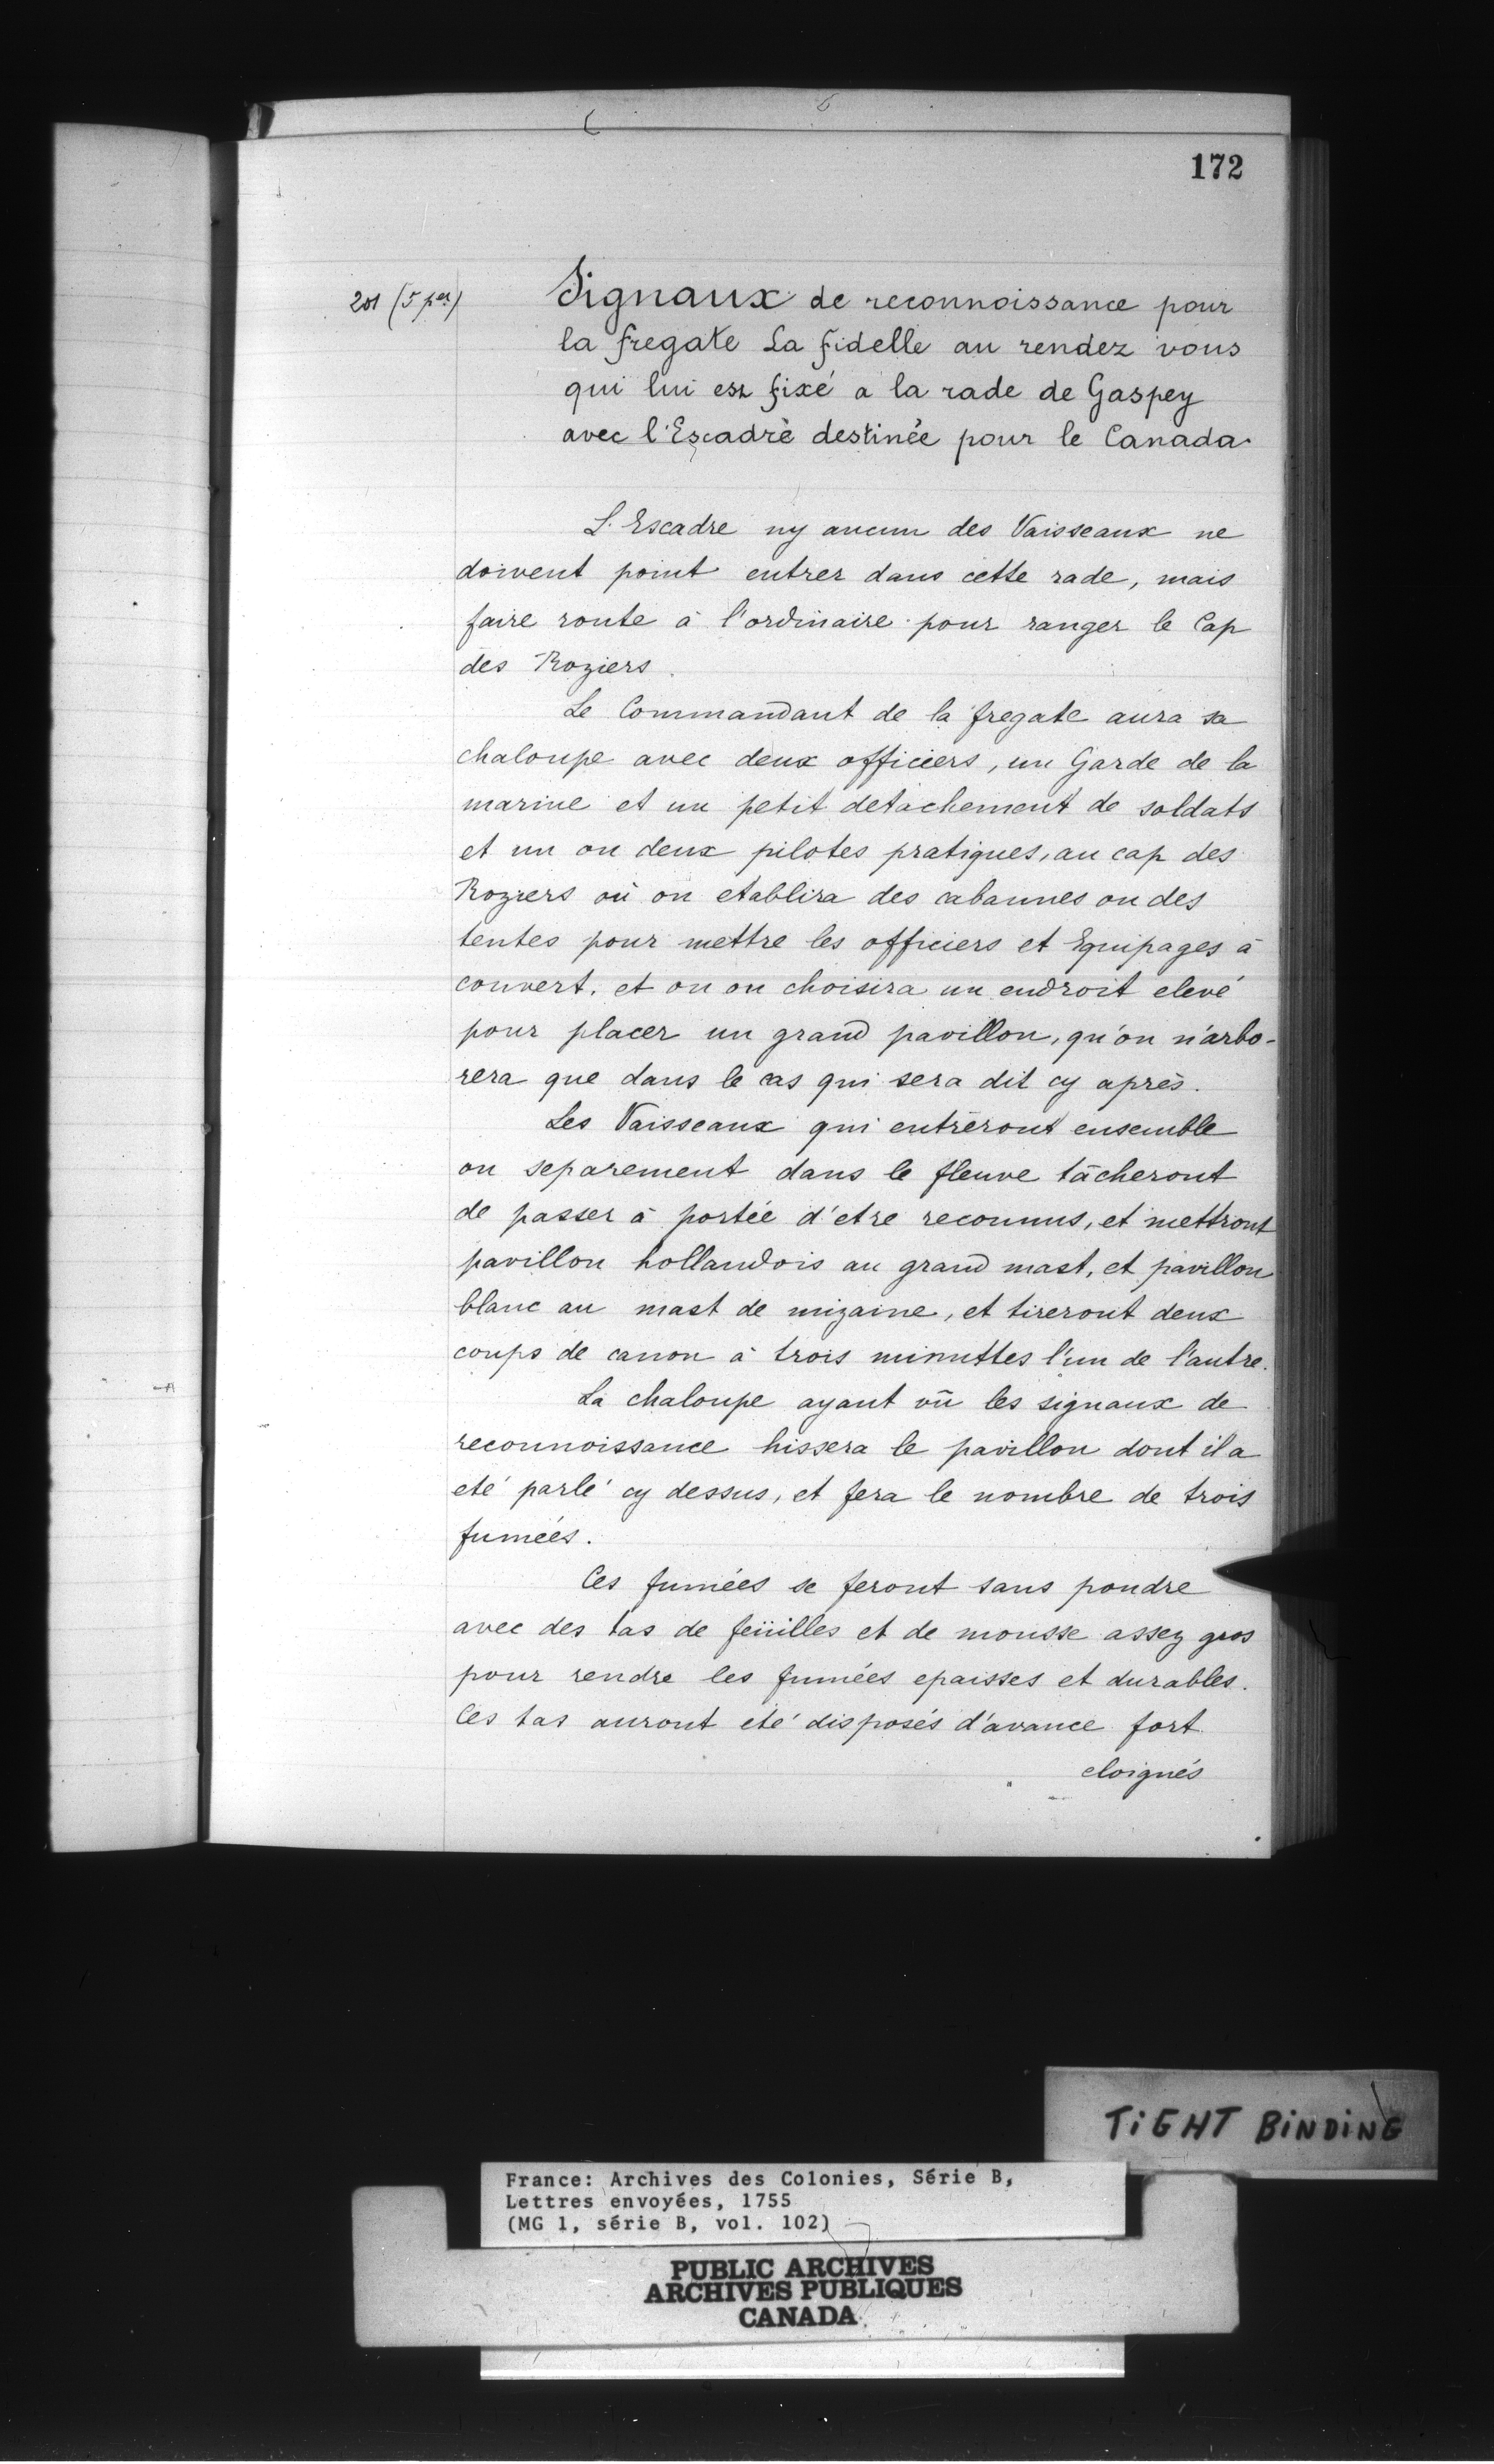 172
201 (5 per)
Signaux de reconnoissance pour
la fregate La fidelle au rendez vous
qui lui est fixé a la rade de Gaspey
avec l'Escadre destinée pour le Canada.
L'Escadre ny aucun des Vaisseaux ne
doivent point entrer dans cette rade, mais
faire route à l'ordinaire pour ranger le Cap
des Roziers.
Le Commandant de la fregate aura sa
chaloupe avec deux officiers, un Garde de la
marine et un petit detachement de soldats
et un ou deux pilotes pratiques, au cap des
Roziers où on etablira des cabannes ou des
tentes pour mettre les officiers et Equipages à
couvert, et ou on choisira un endroit elevé
pour placer un grand pavillon, qu'on n'arbo-
rera que dans le cas qui sera dit cy après.
Les Vaisseaux qui entreront ensemble
ou separement dans le fleuve tâcheront
de passer à portée d'etre reconnus, et mettront
pavillon hollandois au grand mast, et pavillon
blanc au mast de mizaine, et tireront deux
coups de canon à trois minuttes l'un de l'autre.
La chaloupe ayant vû les signaux de
reconnoissance hissera le pavillon dont il a
eté parlé cy dessus, et fera le nombre de trois
fumées.
Ces fumées se feront sans poudre
avec des tas de feüilles et de mousse assez gros
pour rendre les fumées epaisses et durables.
Ces tas auront eté disposés d'avance fort
eloignés
TIGHT BINDING
France: Archives des Colonies, Série B,
Lettres envoyées, 1755
(MG 1, série B, vol. 102)
PUBLIC ARCHIVES
ARCHIVES PUBLIQUES
CANADA